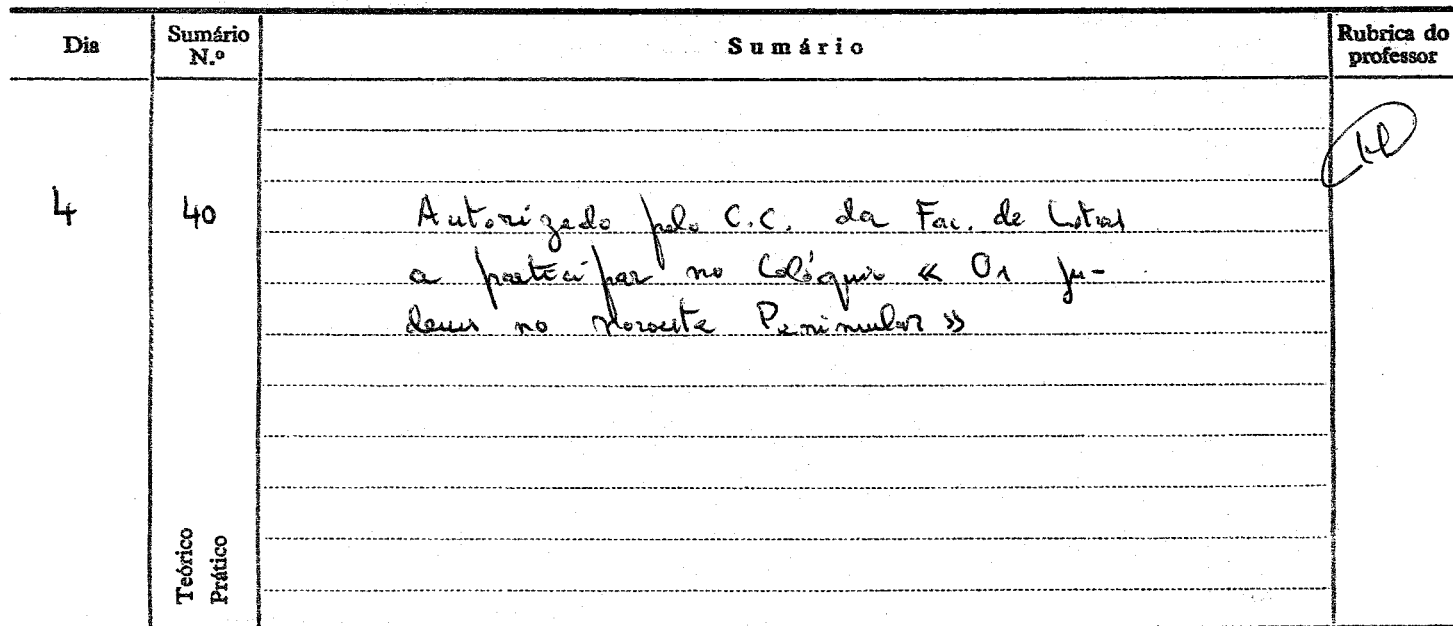 Dia
Sumário N.º
Sumário
Rubrica do professor
4
40
Autorizado pelo C.C. da Fac. de Letras
a participar no Colóquio « Os ju-
deus no Noroeste Peninsular »
Teórico
Prático